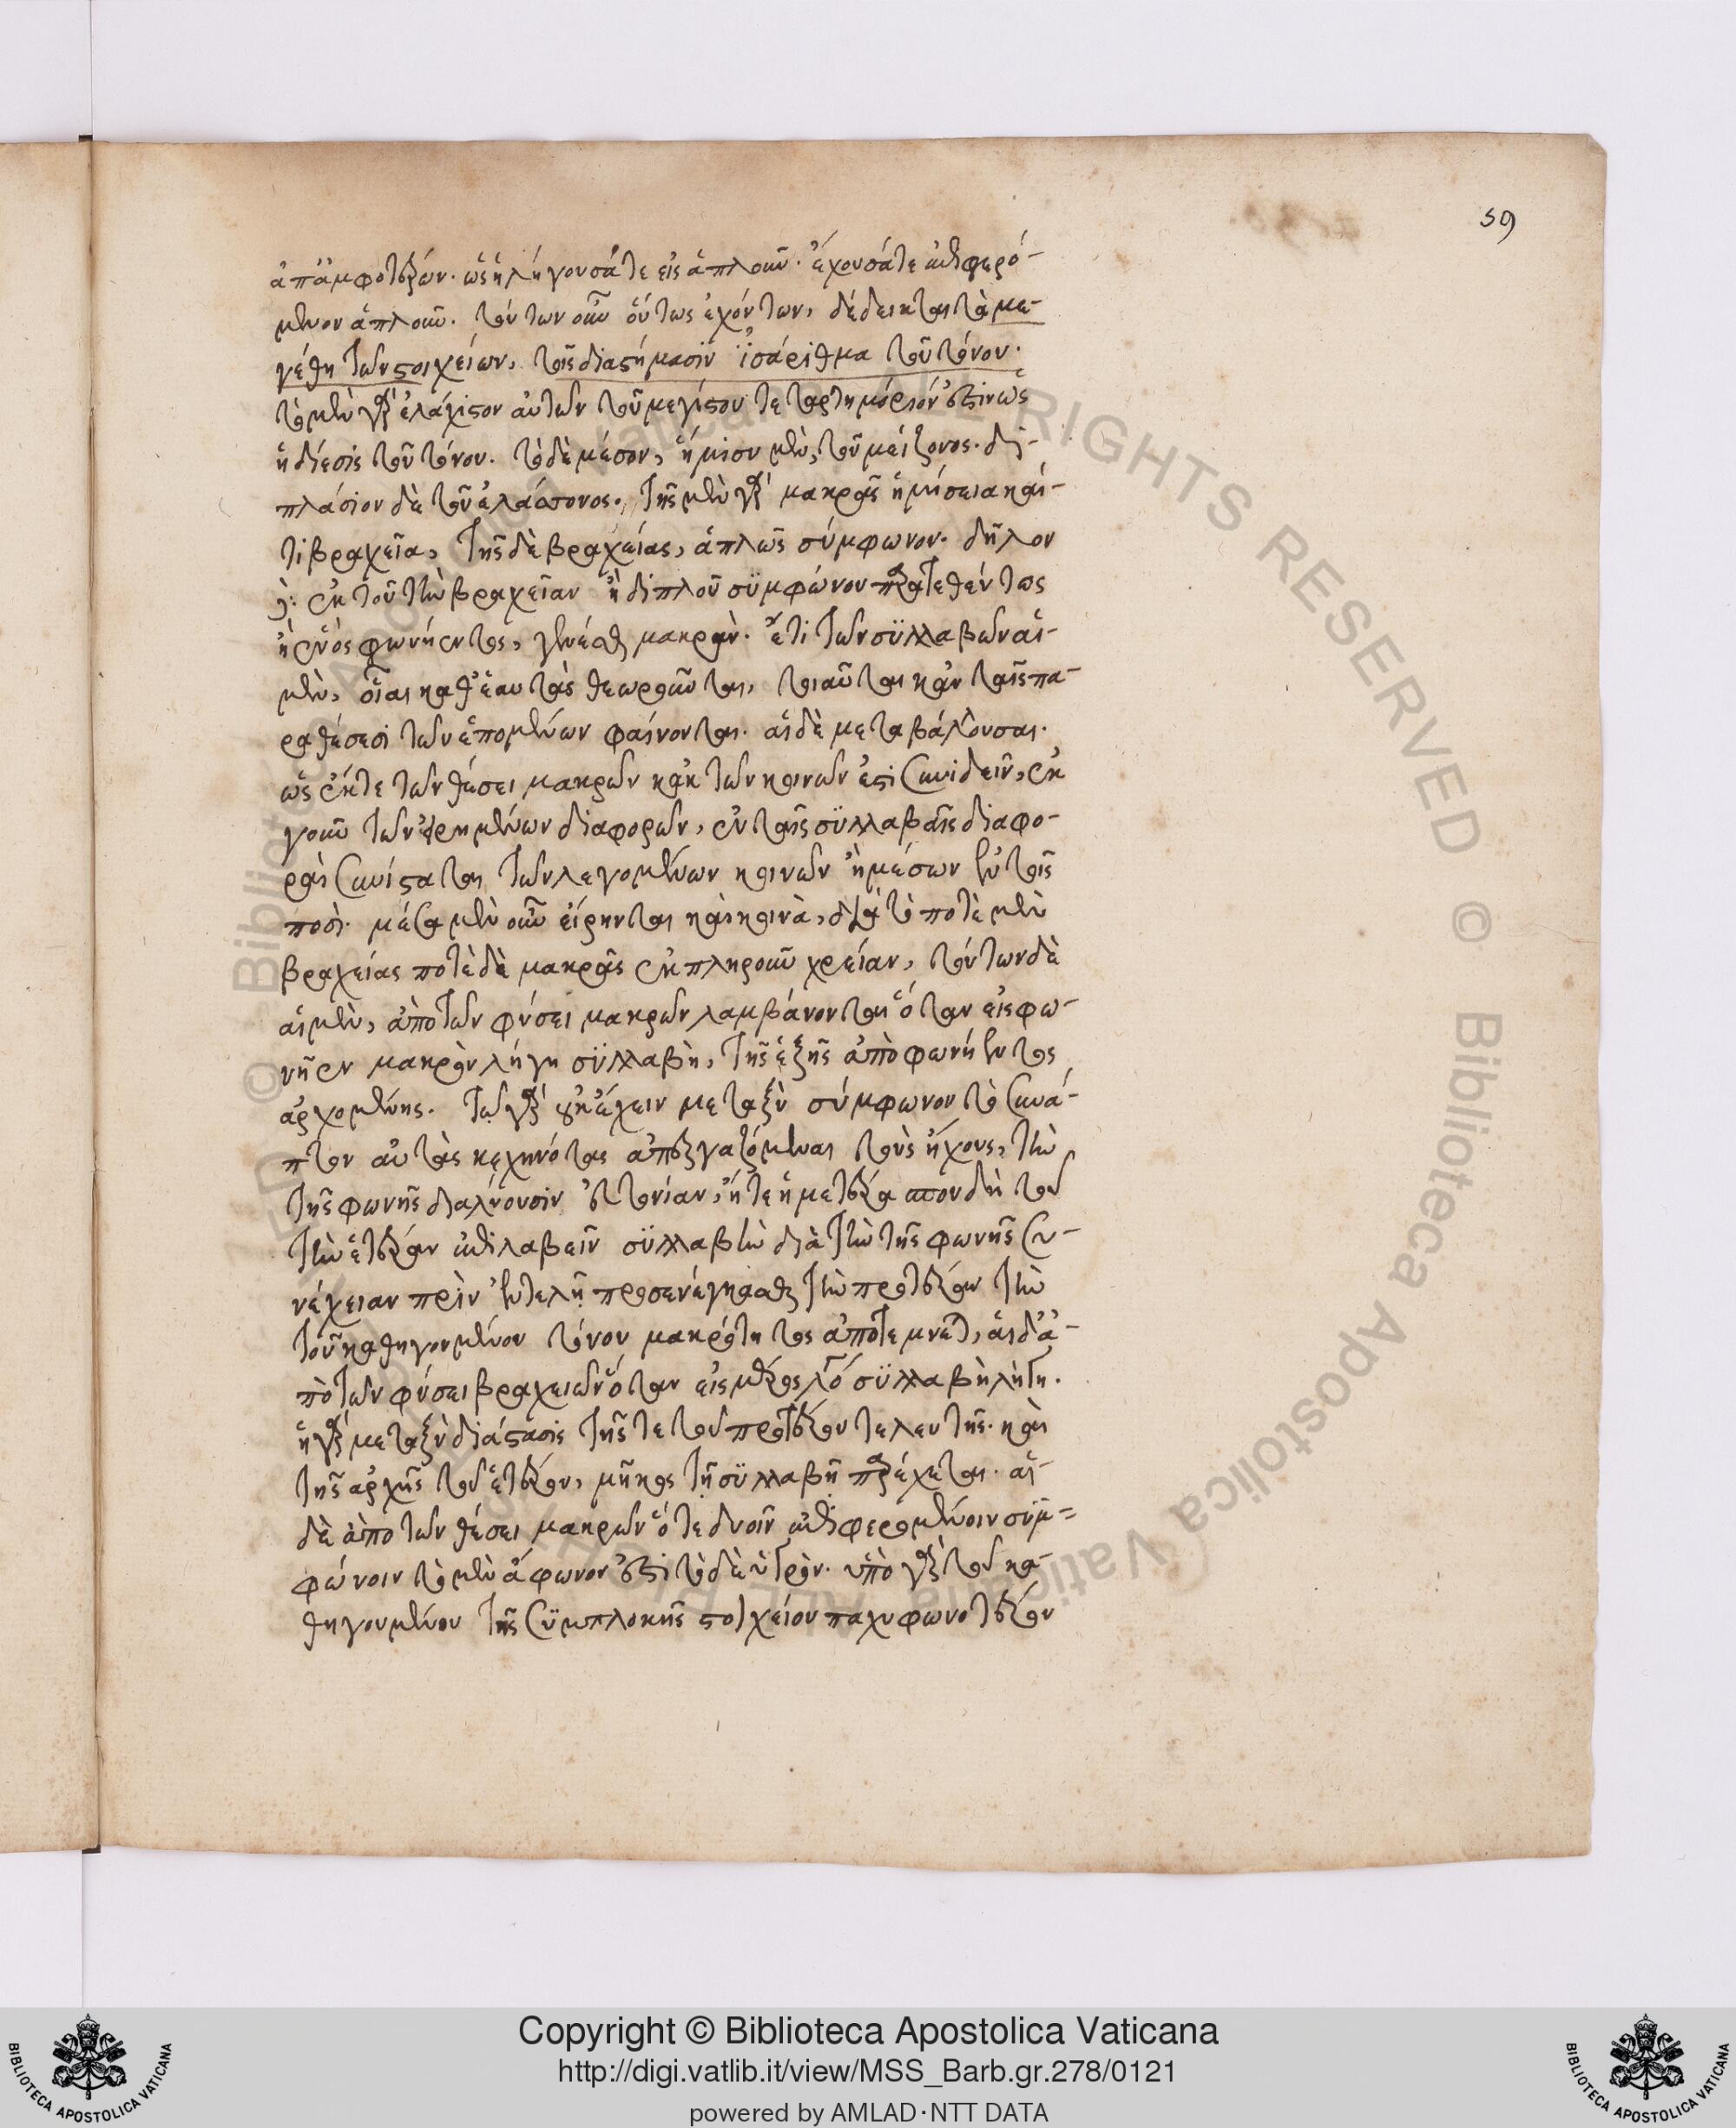 59
ἀπ' ἀμφοτέρων. ὡς ἡ λήγουσά τε εἰς ἁπλοῦν. ἔχουσά τε ἐπιφερό-
μενον ἁπλοῦν. τούτων οὖν οὕτως ἐχόντων, δέδεικται τὰ με-
γέθη τῶν στοιχείων, τοῖς διαστήμασιν ἰσάριθμα τοῦ τόνου.
τὸ μὲν γὰρ ἐλάχιστον αὐτῶν τοῦ μεγίστου τεταρτημόριόν ἐστιν ὡς
ἡ δίεσις τοῦ τόνου. τὸ δὲ μέσον, ἥμισυ μὲν, τοῦ μείζονος. δι-
πλάσιον δὲ τοῦ ἐλάσσονος. τῆς μὲν γὰρ μακρᾶς ἡμίσεια καί-
τι βραχεῖα, τῆς δὲ βραχείας, ἁπλῶς σύμφωνον. δῆλον
δὲ ἐκ τοῦ τὴν βραχεῖαν ἢ διπλοῦ συμφώνου παρατεθέντος
ἢ ἑνὸς φωνήεντος, γενέσθαι μακράν. ἔτι τῶν συλλαβῶν αἱ
μὲν, οἷαι καθ' ἑαυτὰς θεωροῦνται, τοιαῦται κἀν ταῖς πα-
ραθέσεσι τῶν ἑπομένων φαίνονται. αἱ δὲ μεταβάλλουσαι.
ὡς ἔκ τε τῶν θέσει μακρῶν κἀκ τῶν κοινῶν ἔστι συνιδεῖν, ἐκ
γοῦν τῶν εἰρημένων διαφορῶν, ἐν ταῖς συλλαβαῖς διαφο-
ρὰ συνίσταται τῶν λεγομένων κοινῶν ἢ μέσων ἐν τοῖς
ποσί. μέσα μὲν οὖν εἴρηνται καὶ κοινὰ, διὰ τὸ ποτὲ μὲν
βραχείας ποτὲ δὲ μακρᾶς ἐκπληροῦν χρείαν, τούτων δὲ
αἱ μὲν, ἀπὸ τῶν φύσει μακρῶν λαμβάνονται ὅταν εἰς φω-
νῆεν μακρὸν λήγῃ συλλαβὴ, τῆς ἑξῆς ἀπὸ φωνήεντος
ἀρχομένης. τῷ γὰρ οὐκ ἔχειν μεταξὺ σύμφωνον τὸ συνά-
πτον αὐτὰς κεχηνότας ἀπεργαζόμεναι τοὺς ἤχους, τὴν
τῆς φωνῆς διαλύουσιν εὐτονίαν, ἥ τε ἡμετέρα σπουδὴ τοῦ
τὴν ἑτέραν ἐπιλαβεῖν συλλαβὴν διὰ τὴν τῆς φωνῆς συ-
νέχειαν πρὶν ἐντελῆ προσενέγκασθαι τὴν προτέραν τὴν
τοῦ καθηγουμένου τόνου μακρότητος ἀποτέμνεται, αἱ δ' ἀ-
πὸ τῶν φύσει βραχειῶν ὅταν εἰς μέρος λόγου συλλαβὴ λήγῃ.
ἡ γὰρ μεταξὺ διάστασις τῆς τε τοῦ προτέρου τελευτῆς. καὶ
τῆς ἀρχῆς τοῦ ἑτέρου, μῆκος τῇ συλλαβῇ παρέχεται. αἱ
δὲ ἀπὸ τῶν θέσει μακρῶν ὅτε δυοῖν ἐπιφερομένοιν συμ-
φώνοιν τὸ μὲν ἄφωνόν ἐστι τὸ δὲ ὑγρὸν. ὑπὸ γὰρ τοῦ κα-
θηγουμένου τῆς συμπλοκῆς στοιχείου παχυφωνοτέρου
Copyright © Biblioteca Apostolica Vaticana
http://digi.vatlib.it/view/MSS_Barb.gr.278/0121
powered by AMLAD·NTT DATA